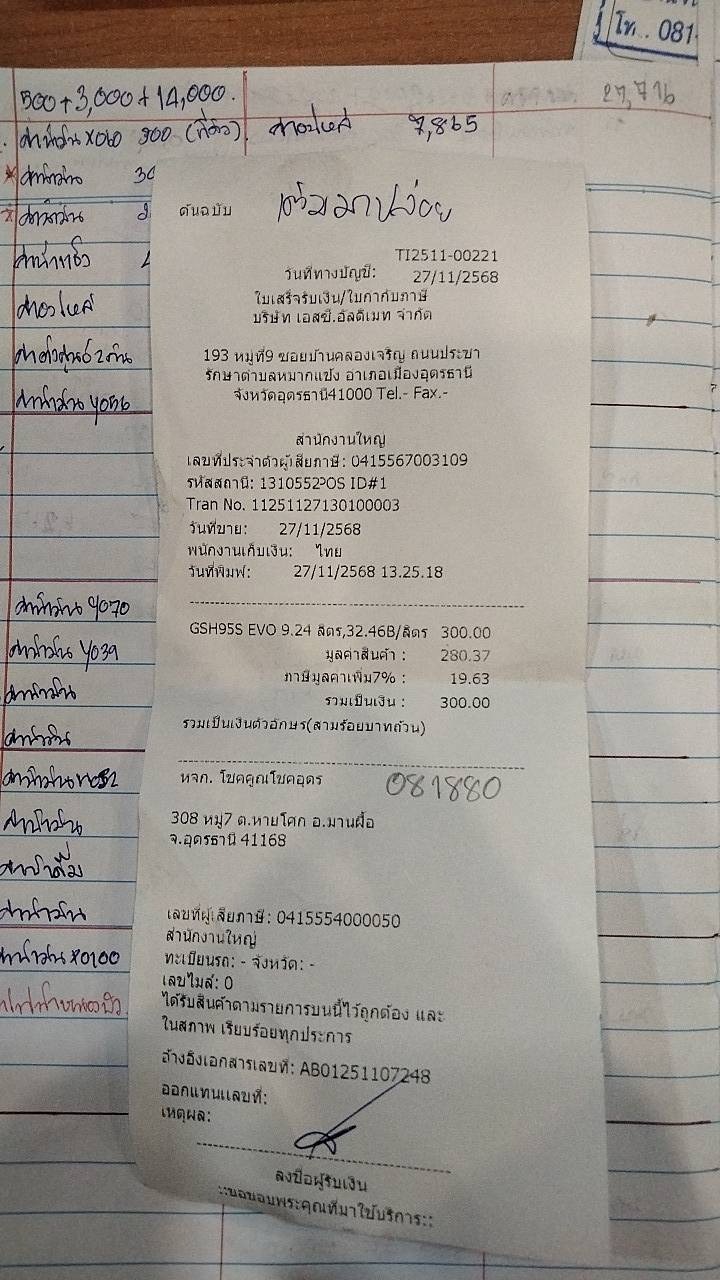 โทร... 081-
500+3,000+14,000.
27,716
ค่าน้ำมัน x060 300 (พี่ติ๋ว)
ค่าอะไหล่ 7,865
ค่าน้ำมัน
ค่าน้ำมัน
ค่าอะไหล่
ค่าน้ำมัน
ค่าน้ำมัน
ค่าน้ำมัน
ค่าน้ำมัน
ค่าน้ำมัน
ค่าน้ำดื่ม
ค่าน้ำมัน
ค่าน้ำมัน
ต้นฉบับ
TI2511-00221
วันที่ทางบัญชี: 27/11/2568
ใบเสร็จรับเงิน/ใบกำกับภาษี
บริษัท เอสซี.อัลติเมท จำกัด
193 หมู่ที่9 ซอยบ้านคลองเจริญ ถนนประชา
รักษาตำบลหมากแข้ง อำเภอเมืองอุดรธานี
จังหวัดอุดรธานี41000 Tel.- Fax.-
สำนักงานใหญ่
เลขที่ประจำตัวผู้เสียภาษี: 0415567003109
รหัสสถานี: 1310552POS ID#1
Tran No. 11251127130100003
วันที่ขาย: 27/11/2568
พนักงานเก็บเงิน: ไทย
วันที่พิมพ์: 27/11/2568 13.25.18
GSH95S EVO 9.24 ลิตร,32.46B/ลิตร 300.00
มูลค่าสินค้า : 280.37
ภาษีมูลค่าเพิ่ม7% : 19.63
รวมเป็นเงิน : 300.00
รวมเป็นเงินตัวอักษร(สามร้อยบาทถ้วน)
หจก. โชคคูณโชคอุดร
081880
308 หมู่7 ต.หายโศก อ.บ้านผือ
จ.อุดรธานี 41168
เลขที่ผู้เสียภาษี: 0415554000050
สำนักงานใหญ่
ทะเบียนรถ: - จังหวัด: -
เลขไมล์: 0
ได้รับสินค้าตามรายการบนนี้ไว้ถูกต้อง และ
ในสภาพ เรียบร้อยทุกประการ
อ้างอิงเอกสารเลขที่: AB01251107248
ออกแทนเลขที่:
เหตุผล:
ลงชื่อผู้รับเงิน
::ขอขอบพระคุณที่มาใช้บริการ::